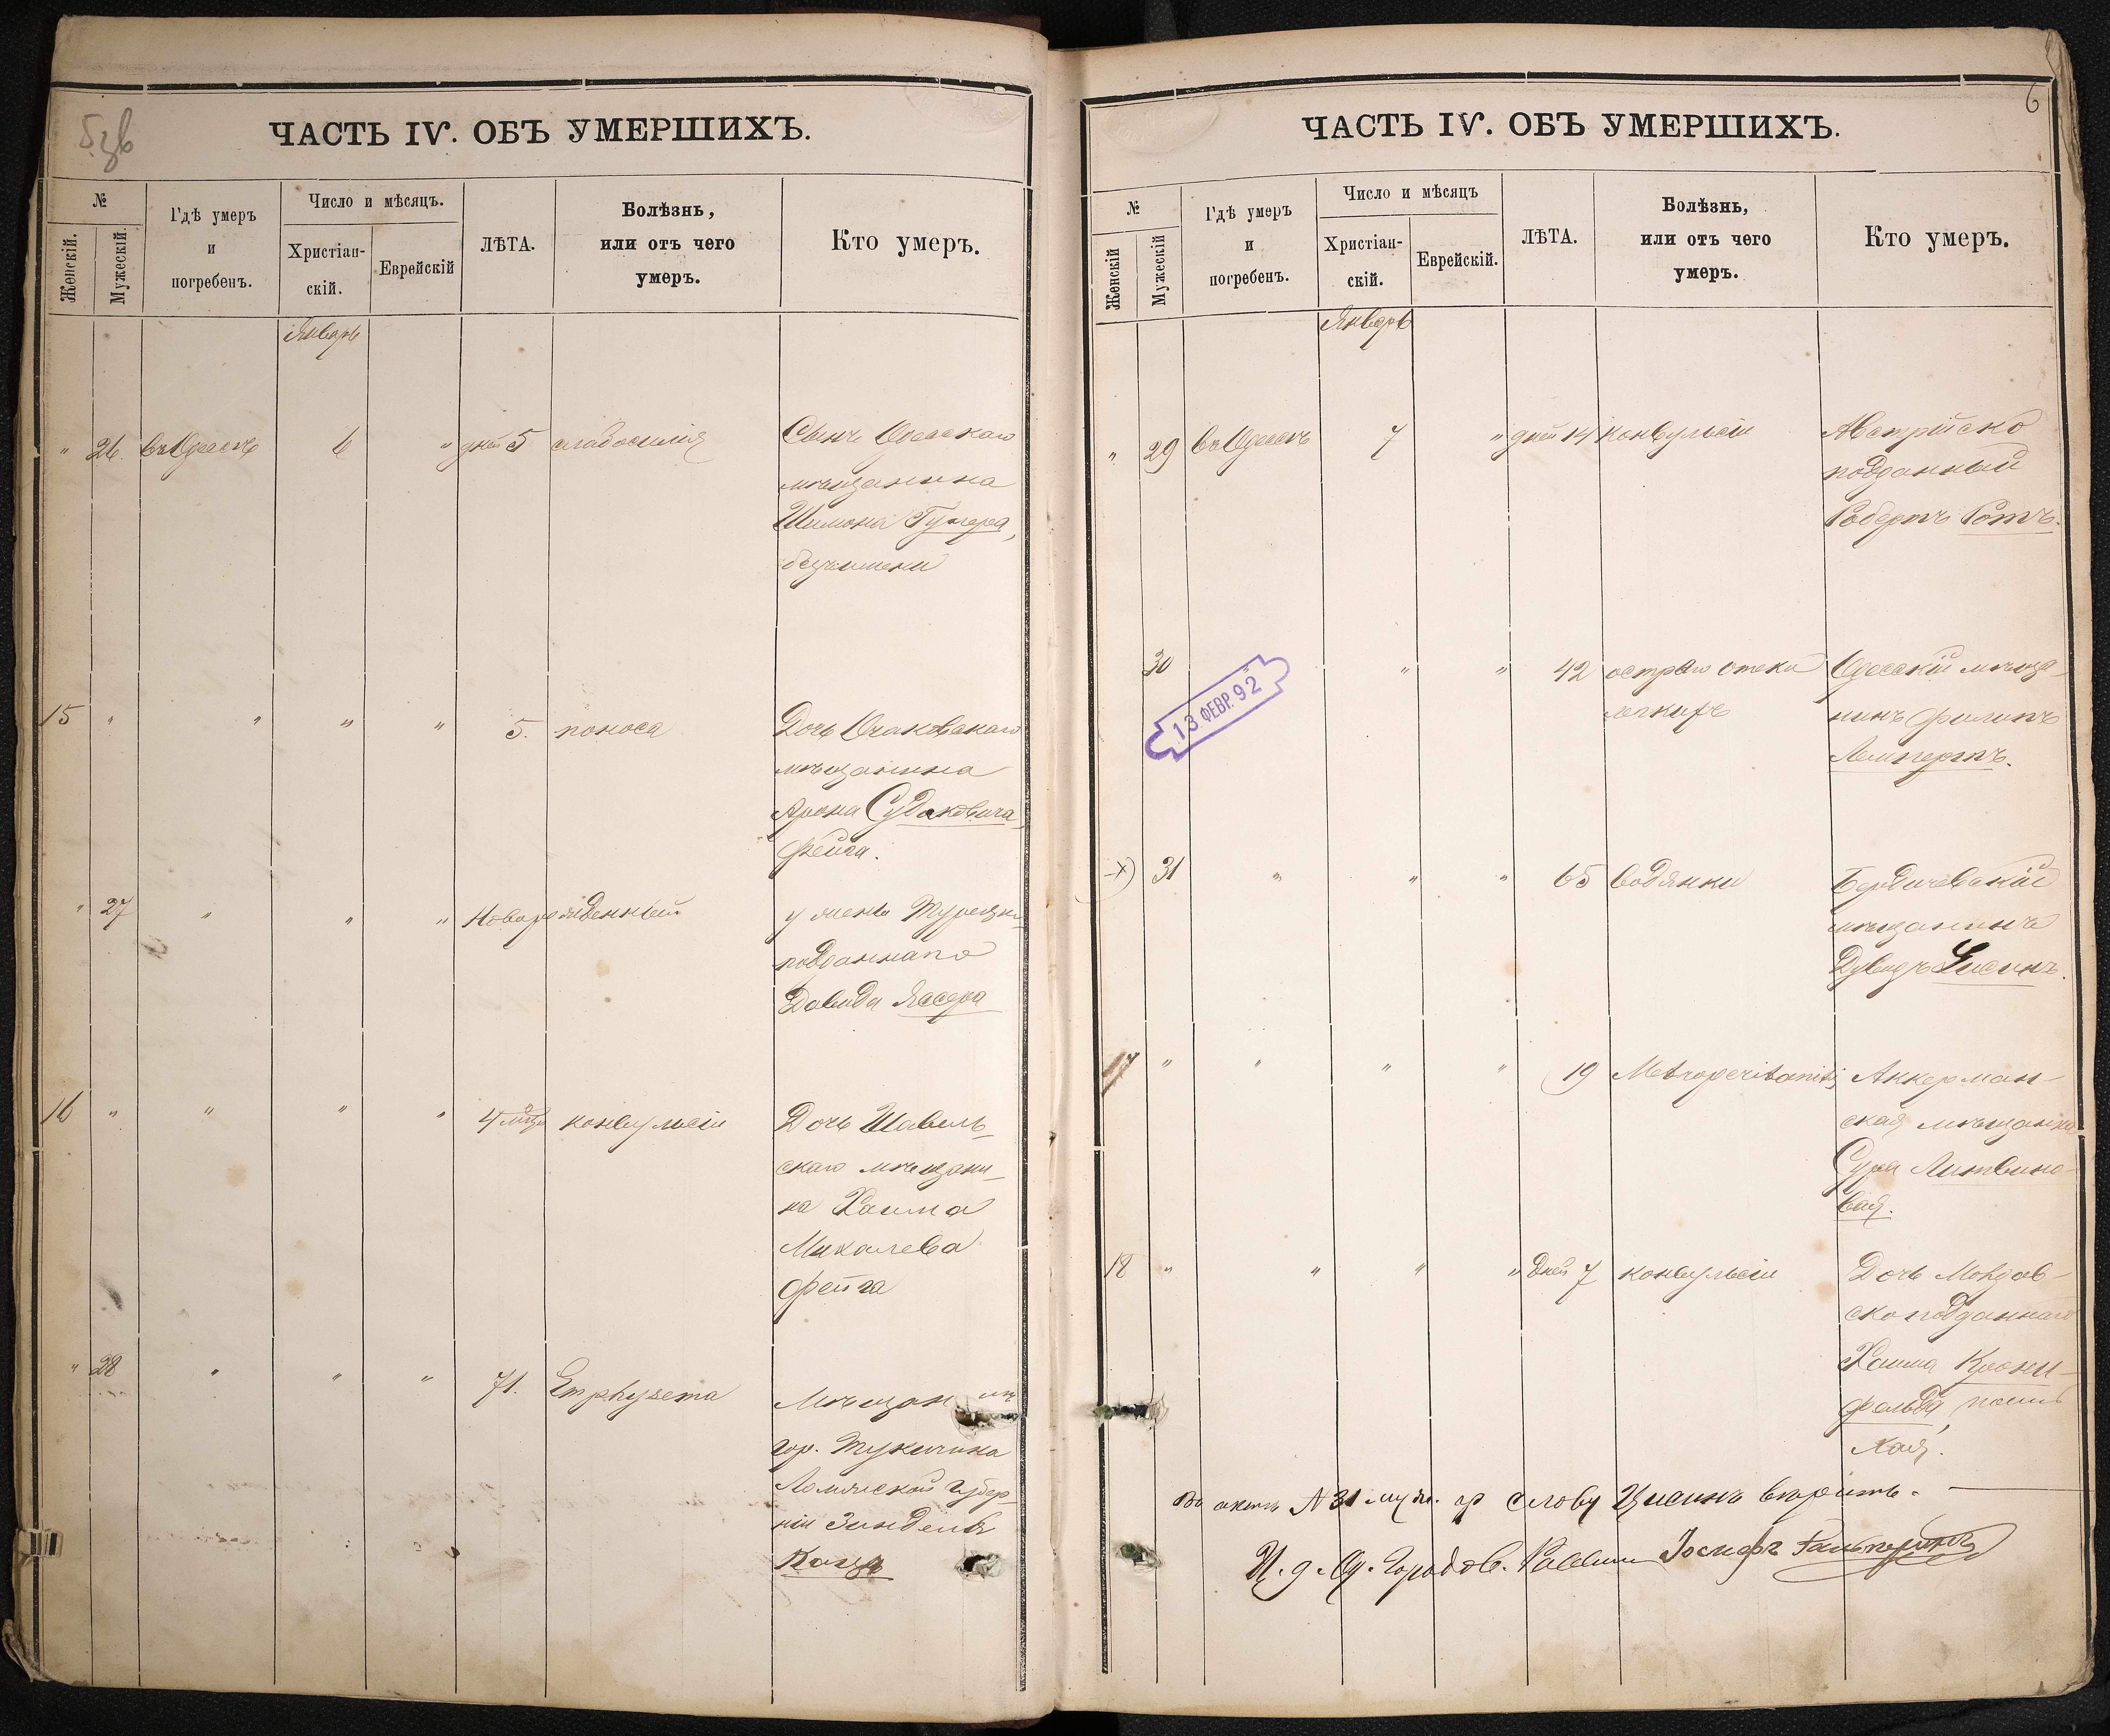 ЧАСТЬ IV. ОБЪ УМЕРШИХЪ.
№
Женскій.
Мужескій.
Гдѣ умеръ
и
погребенъ.
Число и мѣсяцъ.
Христіан-
скій.
Еврейскій
ЛѢТА.
Болѣзнь,
или отъ чего
умеръ.
Кто умеръ.
Январь
" 26 въ Одессѣ 6 " дней 5 слабосилія Сынъ Одесскаго
мѣщанина
Шимона
безъ имени
15 " " " " 5. поноса Дочь Очаковскаго
мѣщанина
Арона Судаковича
Фейга.
" 27 " " " Новорожденный у жены Турецко
подданнаго
Давида Яссера
16 " " " " 4 мѣс. конвульсіи Дочь Шавель-
скаго мѣщани-
на Хаима
Михалева
Фейга
" 28 " " " 71. Emphysema Мѣщанинъ
гор. Тукичина
Ломжской губер-
ніи Зиндель
Кацъ
ЧАСТЬ IV. ОБЪ УМЕРШИХЪ.
6
№
Женскій
Мужескій
Гдѣ умеръ
и
погребенъ.
Число и мѣсяцъ
Христіан-
скій.
Еврейскій.
ЛѢТА.
Болѣзнь,
или отъ чего
умеръ.
Кто умеръ.
Январь
" 29 въ Одессѣ 7 " дней 14 конвульсіи Австрійско
подданный
Робертъ Ротъ.
30 " " 42 остраго отека Одесскій мѣща-
легкихъ нинъ Филипъ
Лемпертъ.
13 ФЕВР. 92
х) 31 " " " 65 водянки Бердичевскій
мѣщанинъ
Дувидъ Цисинъ.
17 " " " " 19 Metroperitonitis Аккерман-
ская мѣщанка
Сура Литвино-
вая.
18 " " " " дней 7 конвульсіи Дочь Молдав-
скоподданнаго
Хаима Крони-
фельда,
Хая.
Въ актѣ № 31 муж. гр слову Цисинъ вѣрить.
И. д. Од. Городов. Раввина Іосифъ Гальперинъ